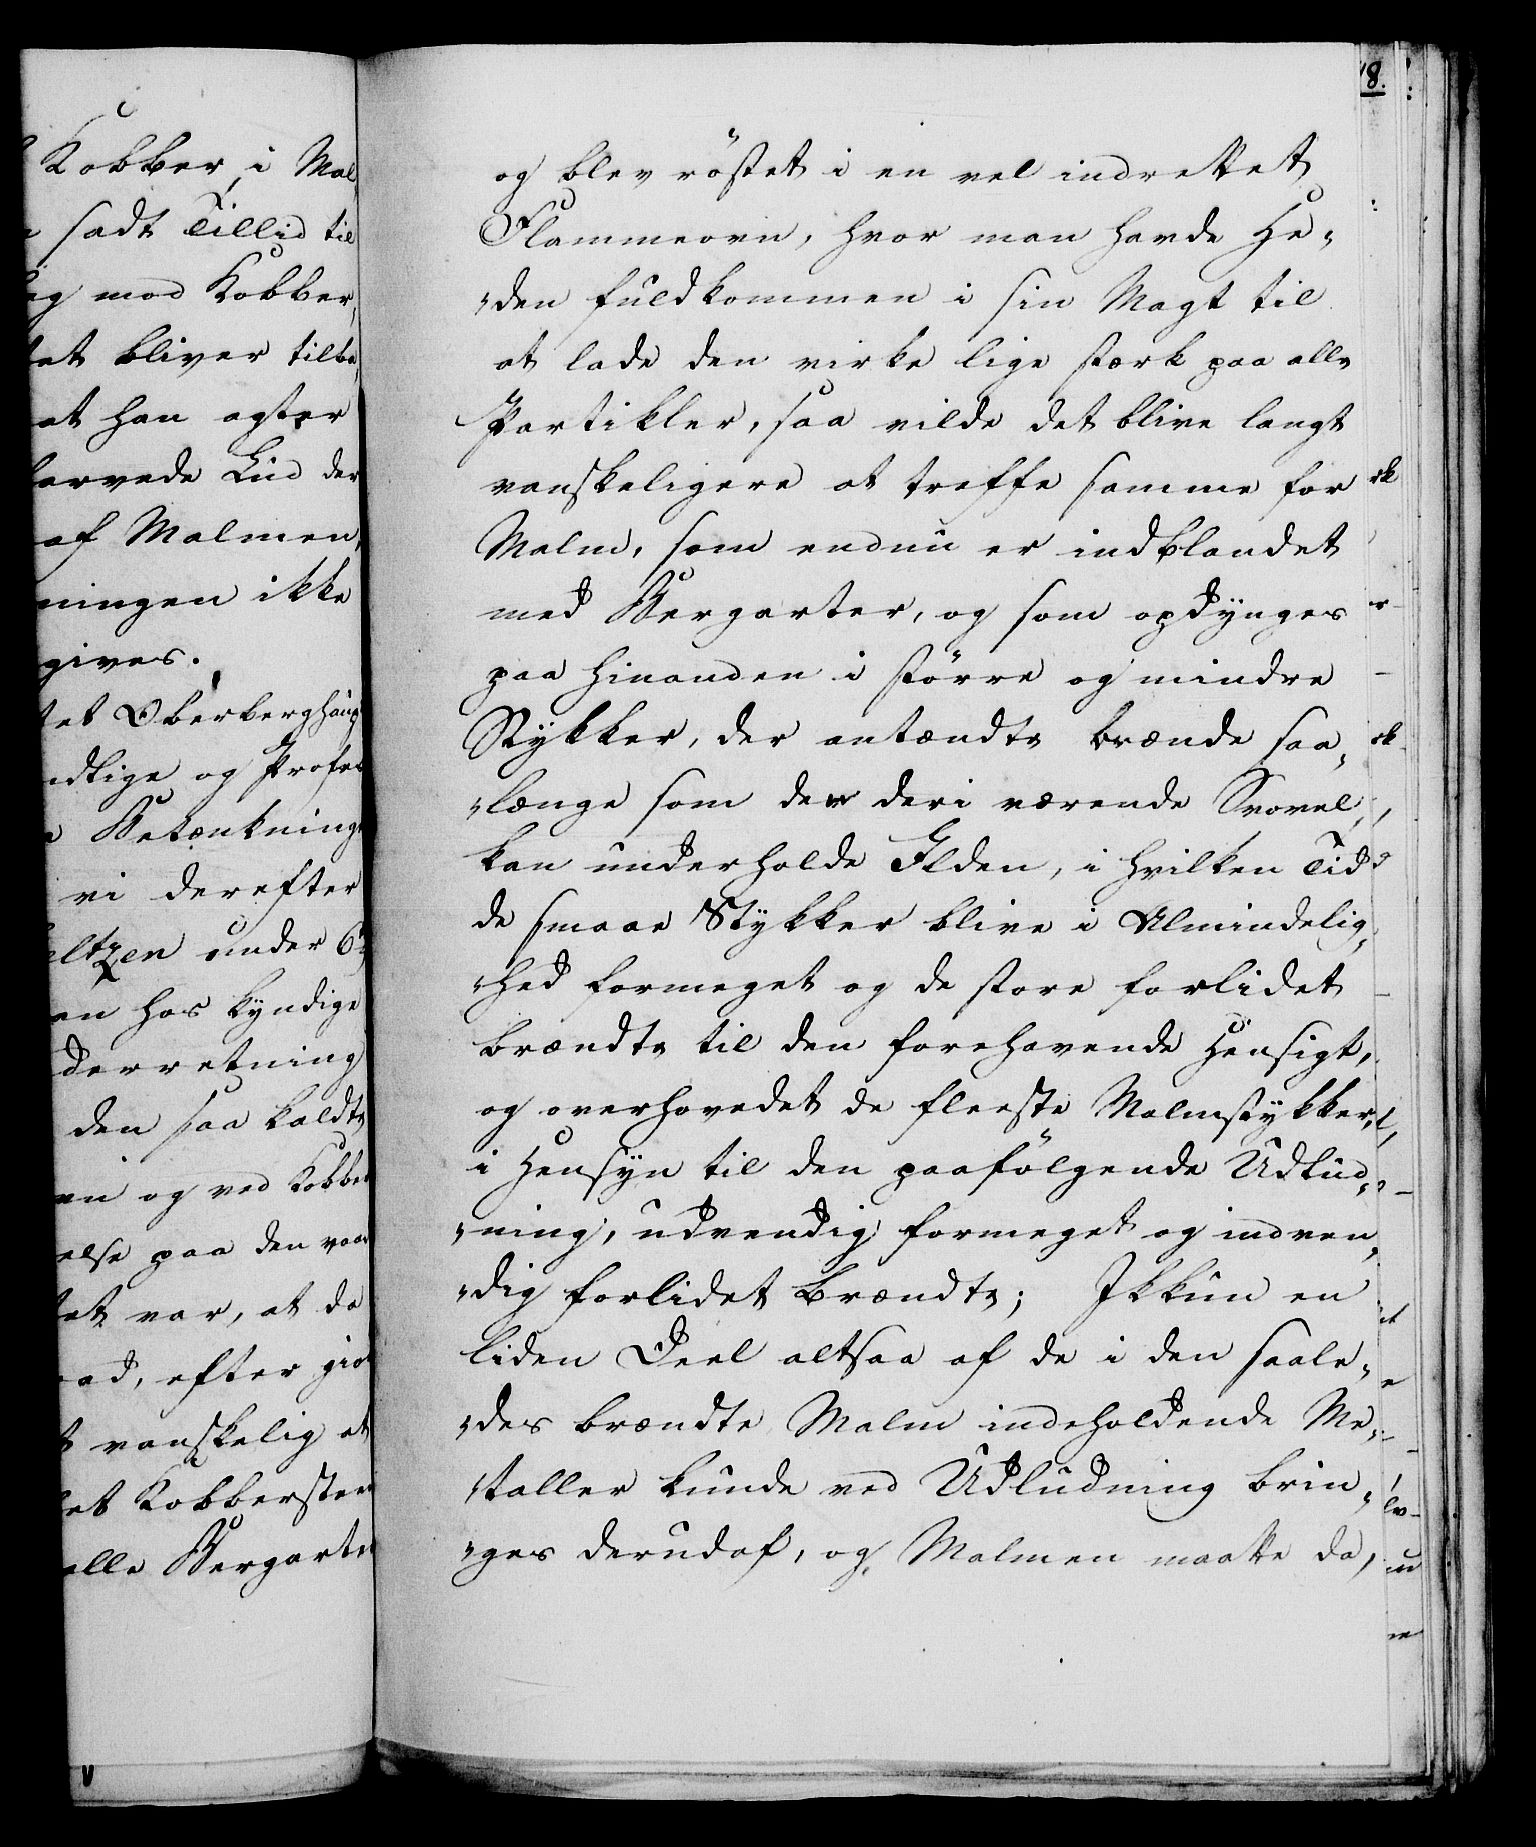 Kobber, i Mal
sadt Tillid til
mod Kobber,
bliver tilba
at han agter
Lud der
af Malmen,
ningen ikke
gives.
Oberberghaup
og Profes
Betænkning
vi derefter
eltzen under 6te
en hos kyndige
derretning
den saa kaldte
og ved Kobber
else paa den
et var, at da
efter gio
vanskelig at
et Kobbersten
alle Bergarter
18.
og blev röstet i en vel indrettet
Flammeovn, hvor man havde He„
„den fuldkommen i sin Magt til
at lade den virke lige stærk paa alle
Partikler, saa vilde det blive langt
vanskeligere at treffe samme for
Malm, som endnu er indblandet
med Bergarter, og som opdynges
paa hinanden i större og mindre
Stykker, der antændte brænde saa„
„længe som den deri værende Svovel
kan underholde Ilden, i hvilken Tid
de smaae Stykker blive i Almindelig„
„hed formeget og de store forlidet
brændte til den forehavende Hensigt,
og overhovedet de fleeste Malmstykker,
i Hensyn til den paafölgende Udlud„
„ning, udvendig formeget og indven„
„dig forlidet brændte; Ikkun en
liden Deel altsaa af de i den saale„
„des brændte Malm indeholdende Me„
„taller kunde ved Udludning brin„
„ges derudaf, og Malmen maatte da,